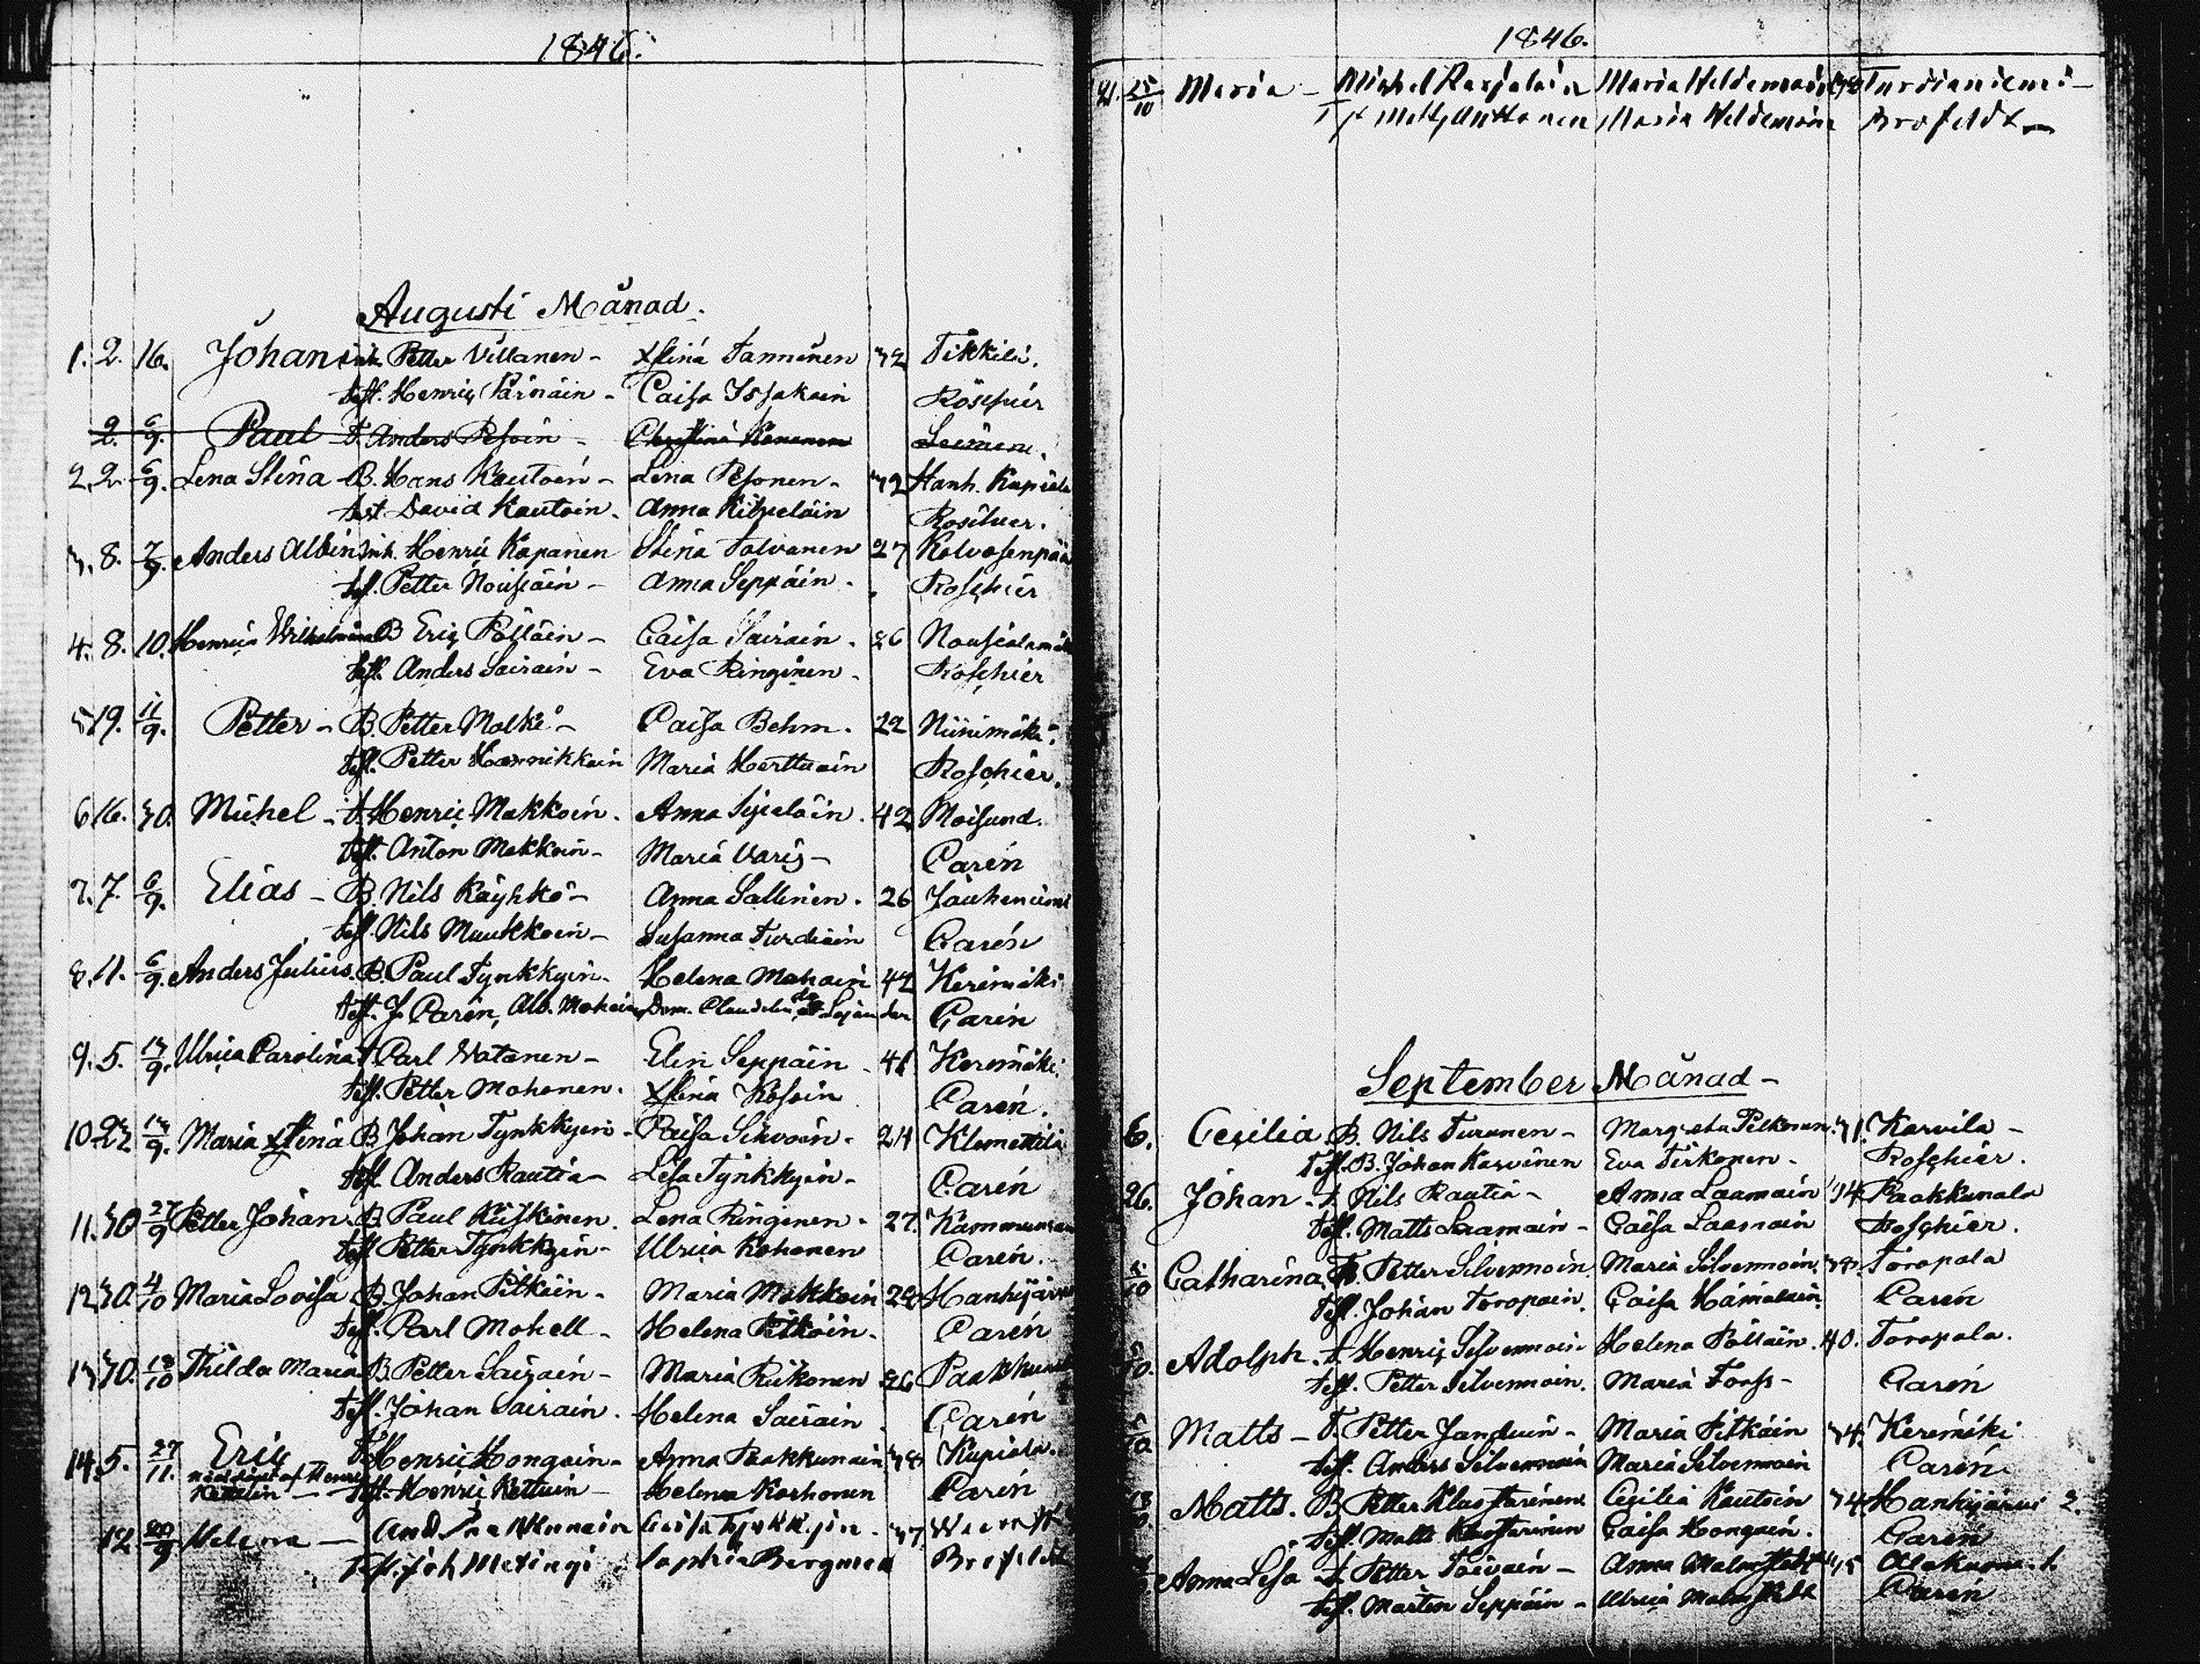 1846.
Augusti Månad.
1. 2. 16. Johan Petter Villanen - Xstina Tannanen 32 Tikkila.
test. Henric Pärnäin - Caisa Issakain
2. 6/9. Paul T. Anders Pesoin - Christina
2. 2. 6/9. Lena Stina - B. Hans Kautoin - Lena Pesonen - 32 Hanh. Kupiala
test David Kautoin. Anna Kilpeläin
3. 8. 7/9. Anders Albin Inh. Henric Kapanen Stina Tolvanen 27 Kolvosenpää
test. Petter Nousiäin - Anna Seppäin - Roschier
4. 8. 10. Henrica Wilhelmina B Eric Pölläin - Caisa Sairain. 26
test. Anders Sairain - Eva Ringinen - Roschier
5 19. 11/9. Petter - B. Petter Malki - Caisa Behm. 22 Niinimäki.
test. Petter Hannikkain Maria Harttuain Roschier.
6 16. 30. Michel - T. Henric Makkoin. Anna 42 Moisund.
test. Anton Makkoin - Maria Varis - Carén
7. 7. 6/9. Elias - B. Nils Käyhkö - Anna Sallinen. 26 Jouhenniemi
test. Nils Muukkoin - Susanna Turdiain Carén
8. 11. 6/9. Anders Julius. B. Paul Tynkkyin - Helena Mohoin 42 Kerimäki
test. J. Carén, Alb. Mohoin, Dem. Carén
9. 5. 13/9. Ulrica Carolina T Carl Vatanen - Elin Seppäin - 41 Kerimäki.
test. Petter Mohonen. Xstina Kosoin Carén.
10 23 13/9. Maria Xstina B Johan Tynkkyin - Caisa Silvoin - 24 Klemettilä
test Anders Rautia - Lisa Tynkkyin - Carén
11. 30 27/9 Petter Johan - B Paul Kiiskinen. Lena Ringinen - 27.
test Petter Tynkkyin - Ulrica Kohonen Carén.
12 30. 4/10 Maria Lovisa B. Johan Pitkäin - Maria Makkoin Hankijärvi
test. Carl Mohell - Helena Pitkäin. Carén
13 30. 18/10 Thilda Maria B. Petter Sairain - Maria Riikonen 26
test. Johan Sairain. Helena Sairain Carén
14. 5. 27/11. Eric T. Henric Hongain - Anna Paakkunain 38 Kupiala.
test. Henric Kettuin - Helena Korhonen Carén
12 20/9 Helena - And. Paakkunain Caisa Tynkkyin. 37
Test. Joh Metinyi Sophia Bergman Brofeldt
1846.
21. 25/10 Maria - Michel Karjalain Maria Heldeman Turdianiemi -
Maria Heldeman Brofeldt -
September Månad -
6. Cecilia B. Nils Turunen - Margreta Pelkonen. 31. Karvila -
Test. B. Johan Karvinen Eva Tirkonen. Roschier.
26. Johan - T. Nils Rautia - Anna Laamain 34 Paakkunala
test. Matts Laamain - Caisa Laamain Roschier.
5/10 Catharina B. Petter Silvennoin. Maria Silvennoin. 32. Toropala
test. Johan Toropain. Caisa Hämäläin. Carén
5/10. Adolph. T. Henric Silvennoin Helena Pölläin. 40. Toropala.
test. Petter Silvennoin. Maria Forss - Carén
5/10 Matts - T. Petter Janduin - Maria Pitkäin 34. Kerimäki
test. Anders Silvennoin Maria Silvennoin Carén
18/10. Matts. B Petter Klastarinen Cecilia Kautoin 34 Hankijärvi 2.
test. Matts Klastarinen Caisa Hongain. Carén
Anna Lisa - T. Petter Toivain - Anna Malmstedt 35
test. Mårten Seppäin - Ulrica Malmstedt Carén